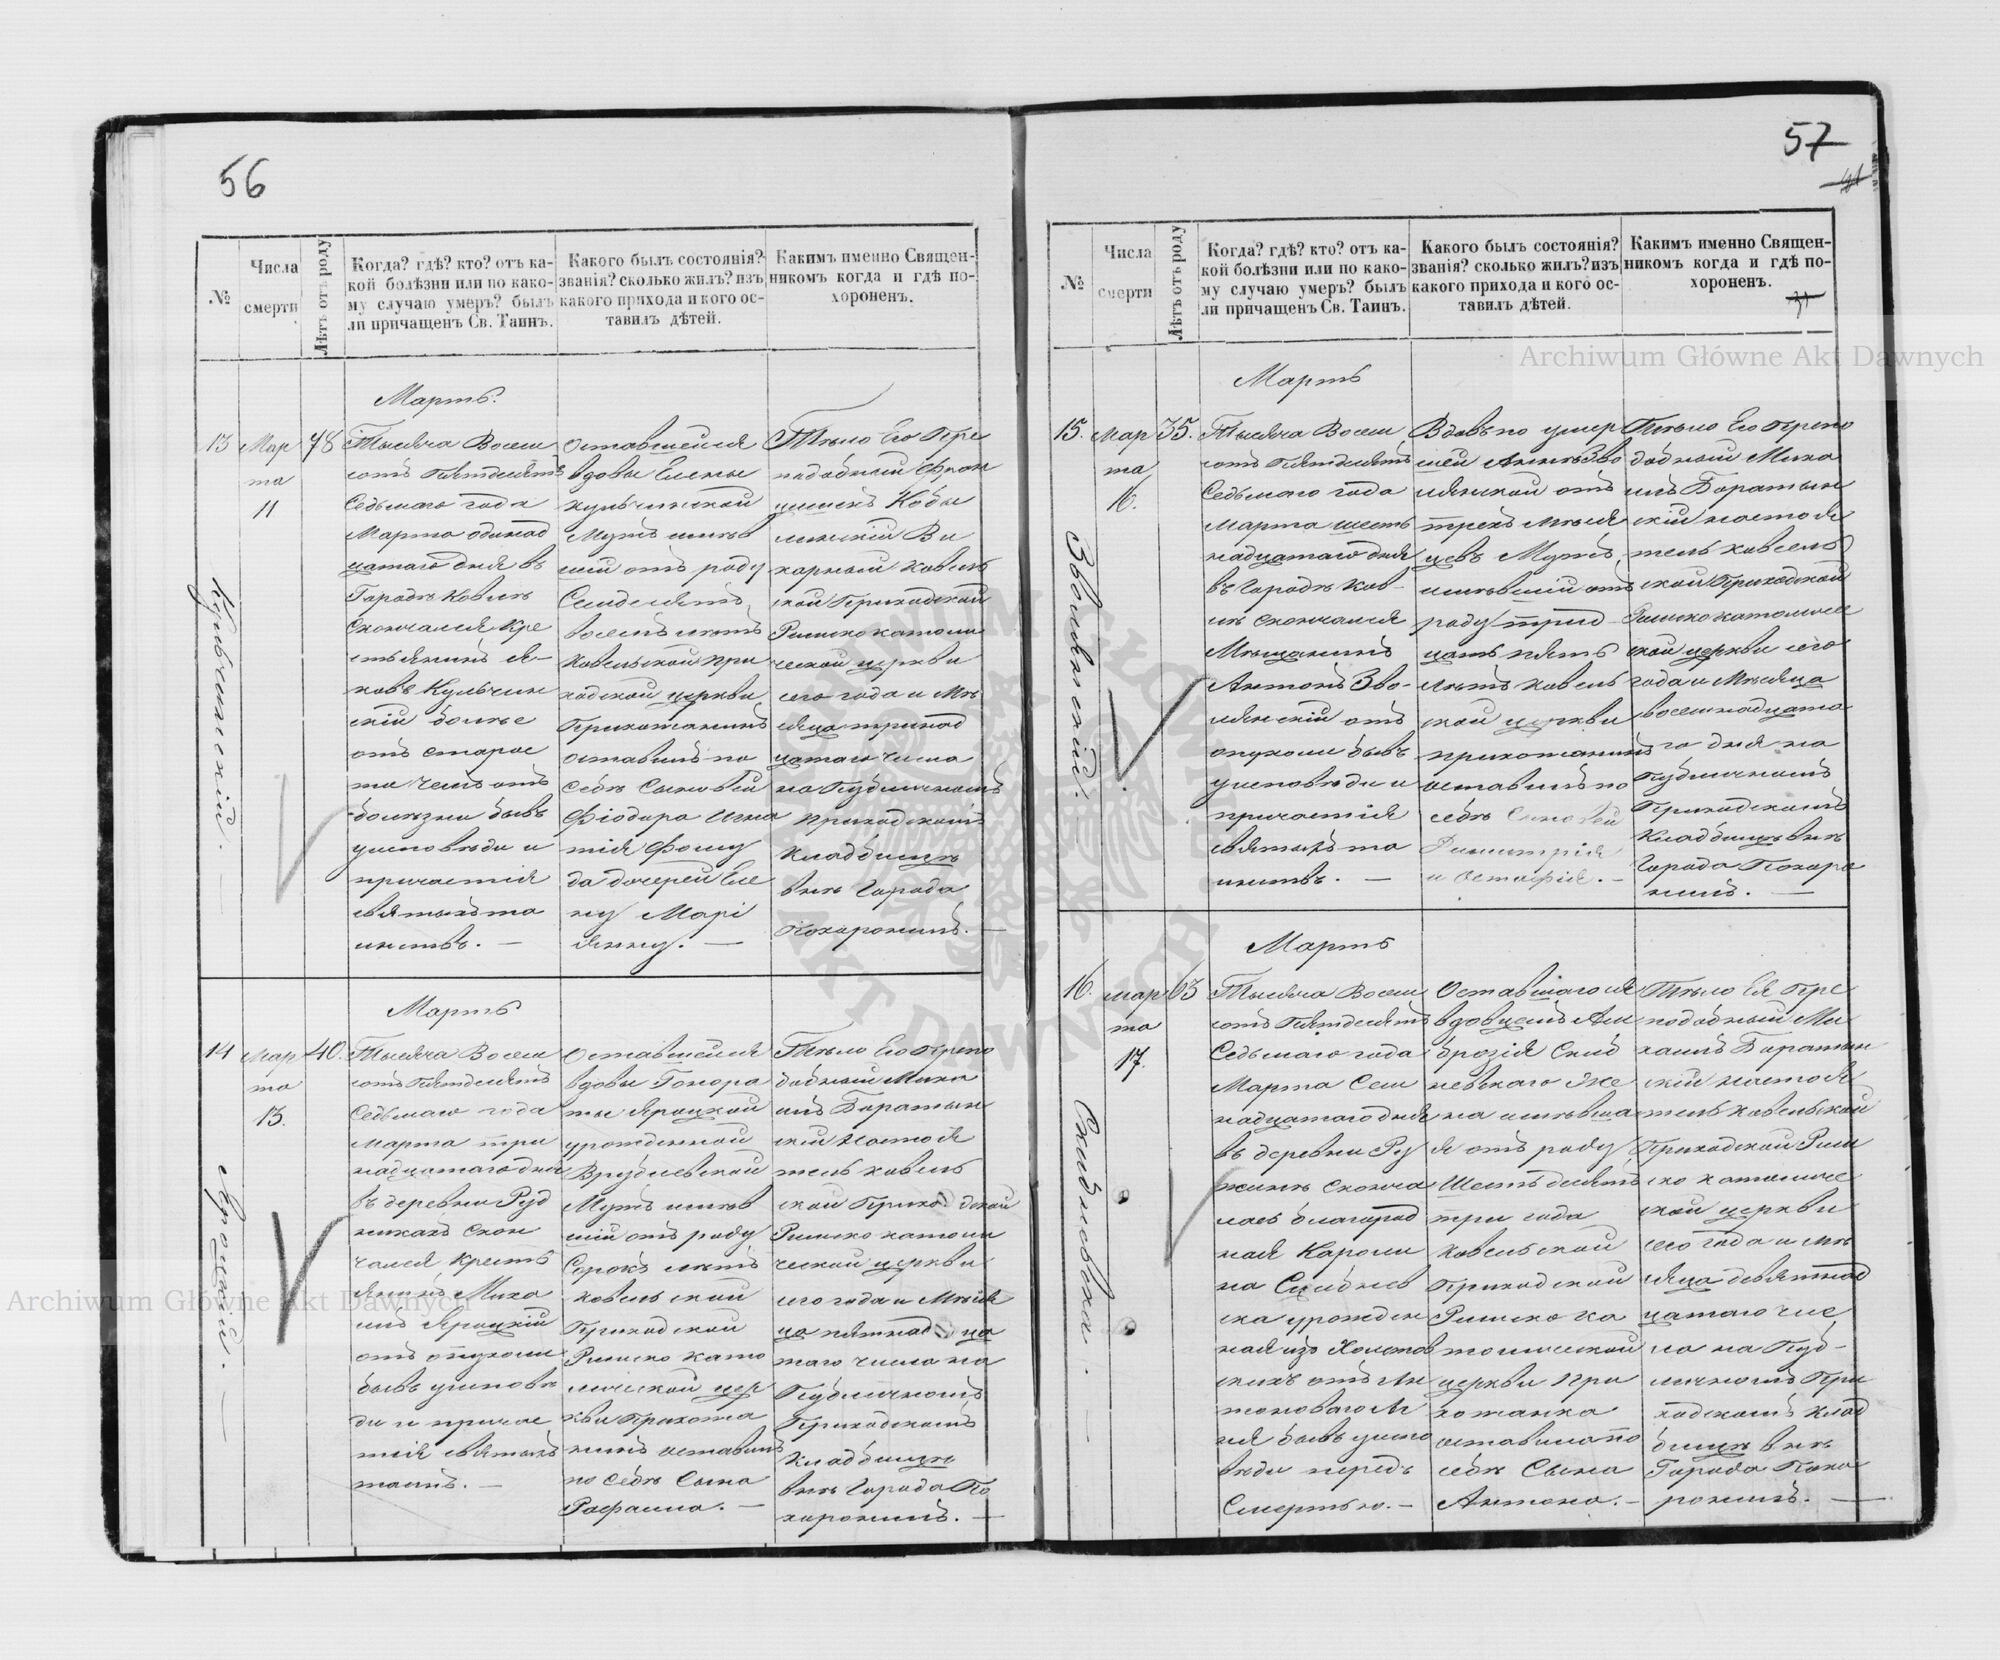 56
№
Числа
смерти
Лѣтъ отъ роду
Когда? гдѣ? кто? отъ ка-
кой болѣзни или по како-
му случаю умеръ? былъ
ли причащенъ Св. Таинъ.
Какого былъ состоянія?
званія? сколько жилъ? изъ
какого прихода и кого ос-
тавилъ дѣтей.
Какимъ именно Священ-
никомъ когда и гдѣ по-
хороненъ.
Кульчинскій. —
13
Мар
та
11
78
Мартъ.
Тысяча Восем
сотъ Пятдесятъ
Седьмаго года
Марта одинад
цатаго дня въ
Городѣ Ковлѣ
Скончался Кре
стьянинъ Я-
ковъ Кульчин
скій болѣе
отъ старос
ти чемъ отъ
болѣзни бывъ
уисповѣди и
причастія
святыхъ та
инствъ. —
Оставшейся
вдовы Елены
Кульчинской
Мужъ имѣв
шій отъ роду
Семдесятъ
восемь лѣтъ
Ковельской при
ходской церкви
Прихожанинъ
оставилъ по
себѣ Сыновей
Фіодора Игна
тія Фому
да дочерей Еле
ну Марі
янну. —
Тѣло Его Пре
подобный Фран
цишекъ Кобы
линскій Ви
карный Ковель
ской Приходской
Римско католи
ческой церкви
сего года и Мѣ
сяца тринад
цатаго числа
на Публичномъ
Приходскомъ
Кладбищѣ
внѣ Города
Похоронилъ. —
Яроцкій. —
14
Мар
та
13.
40.
Мартъ
Тысяча Восем
сотъ Пятдесятъ
Седьмаго года
Марта три
надцатаго дня
въ деревни Руд
никахъ Скон
чался Кресть
янинъ Миха
илъ Яроцкій
отъ опухоли
бывъ уисповѣ
ди и причас
тія святыхъ
таинъ. —
Оставшейся
вдовы Гонора
ты Яроцкой
урожденной
Врублевской
Мужъ имѣв
шій отъ роду
Сорокъ лѣтъ
Ковельской
Приходской
Римско като
лической цер
кви Прихожа
нинъ оставилъ
по себѣ Сына
Рафаила. —
Тѣло Его Препо
добный Миха
илъ Боратын
скій Настоя
тель Ковель
ской Приходской
Римско католи
ческой церкви
сего года и Мѣся
ца пятнадца
таго числа на
Публичномъ
Приходскомъ
Кладбищѣ
внѣ Города По
хоронилъ. —
57
№
Числа
смерти
Лѣтъ отъ роду
Когда? гдѣ? кто? отъ ка-
кой болѣзни или по како-
му случаю умеръ? былъ
ли причащенъ Св. Таинъ.
Какого былъ состоянія?
званія? сколько жилъ? изъ
какого прихода и кого ос-
тавилъ дѣтей.
Какимъ именно Священ-
никомъ когда и гдѣ по-
хороненъ.
Зволянскій. —
15.
Мар
та
16.
35.
Мартъ
Тысяча Восем
сотъ Пятдесятъ
Седьмаго года
Марта шесть
надцатаго дня
въ Городѣ Ков-
лѣ скончался
Мѣщанинъ
Антонъ Зво-
лянскій отъ
опухоли бывъ
уисповѣди и
причастія
святыхъ та
инствъ. —
Вдовъ по умер
шей Аннѣ Зво
лянской отъ
трехъ мѣся
цевъ Мужъ
имѣвшій отъ
роду трид
цать пять
лѣтъ Ковель
ской церкви
прихожанинъ
оставилъ по
себѣ Сыновей
Димитрія
и Остафія. —
Тѣло Его Препо
добный Миха
илъ Боратын
скій настоя
тель Ковель
ской Приходской
Римско католичес
кой церкви сего
года и Мѣсяца
восемнадцата
го дня на
Публичномъ
Приходскомъ
Кладбищѣ внѣ
Города Похоро
нилъ. —
Скибневска. —
16.
Мар
та
17.
63
Мартъ
Тысяча Восем
сотъ Пятдесятъ
Седьмаго года
Марта Сем
надцатаго дня
въ деревни Ру
жинѣ Сконча
лась благород
ная Кароли
на Скибнев
ска урожден
ная изъ Холстов
скихъ отъ Ан
тоноваго ог
ня бывъ уиспо
вѣди передъ
Смертью. —
Оставшагося
вдовцемъ Ам
брозія Скиб
невскаго же
на имѣвша
я отъ роду
Шестьдесятъ
три года
Ковельской
Приходской
Римско ка
толической
церкви при
хожанка
оставила по
себѣ Сына
Антона. —
Тѣло Ея Пре
подобный Ми
хаилъ Боратын
скій настоя
тель Ковельской
Приходской Рим
ско католичес
кой церкви
сего года и мѣ
сяца девятнад
цатаго чис
ла на Пуб-
личномъ При
ходскомъ Клад
бищѣ внѣ
Города Похо
ронилъ. —
Archiwum Główne Akt Dawnych
Archiwum Główne Akt Dawnych